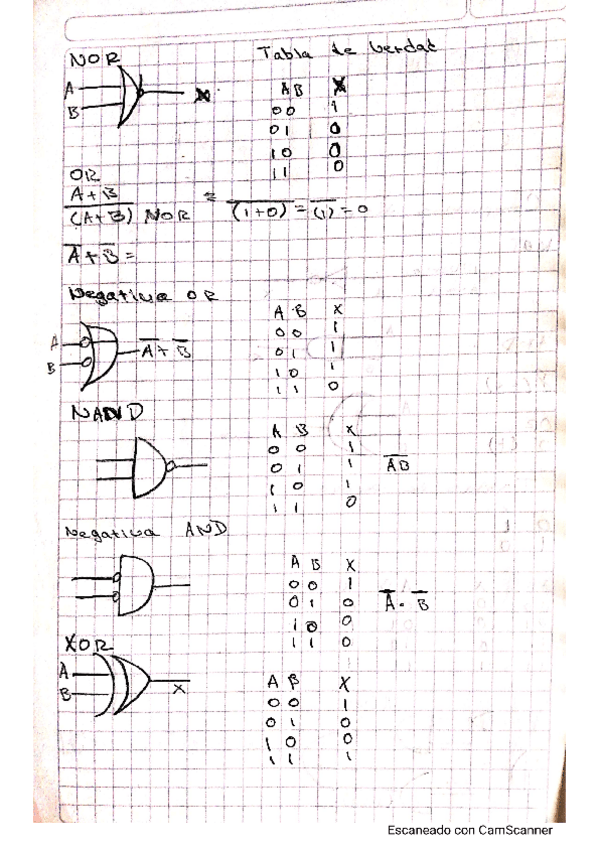 NOR Tabla de verdat
A
B X
A B X
0 0 1
0 1 0
1 0 0
1 1 0
OR
A + B
(A+B) NOR = (1+0) = (1) = 0
A + B =
Negativa OR
A
B A + B
A B X
0 0 1
0 1 1
1 0 1
1 1 0
NAND
A B X
0 0 1
0 1 1 AB
1 0 1
1 1 0
Negativa AND
A B X
0 0 1
0 1 0 A . B
1 0 0
1 1 0
XOR
A
B X
A B X
0 0 1
0 1 0
1 0 0
1 1 1
Escaneado con CamScanner